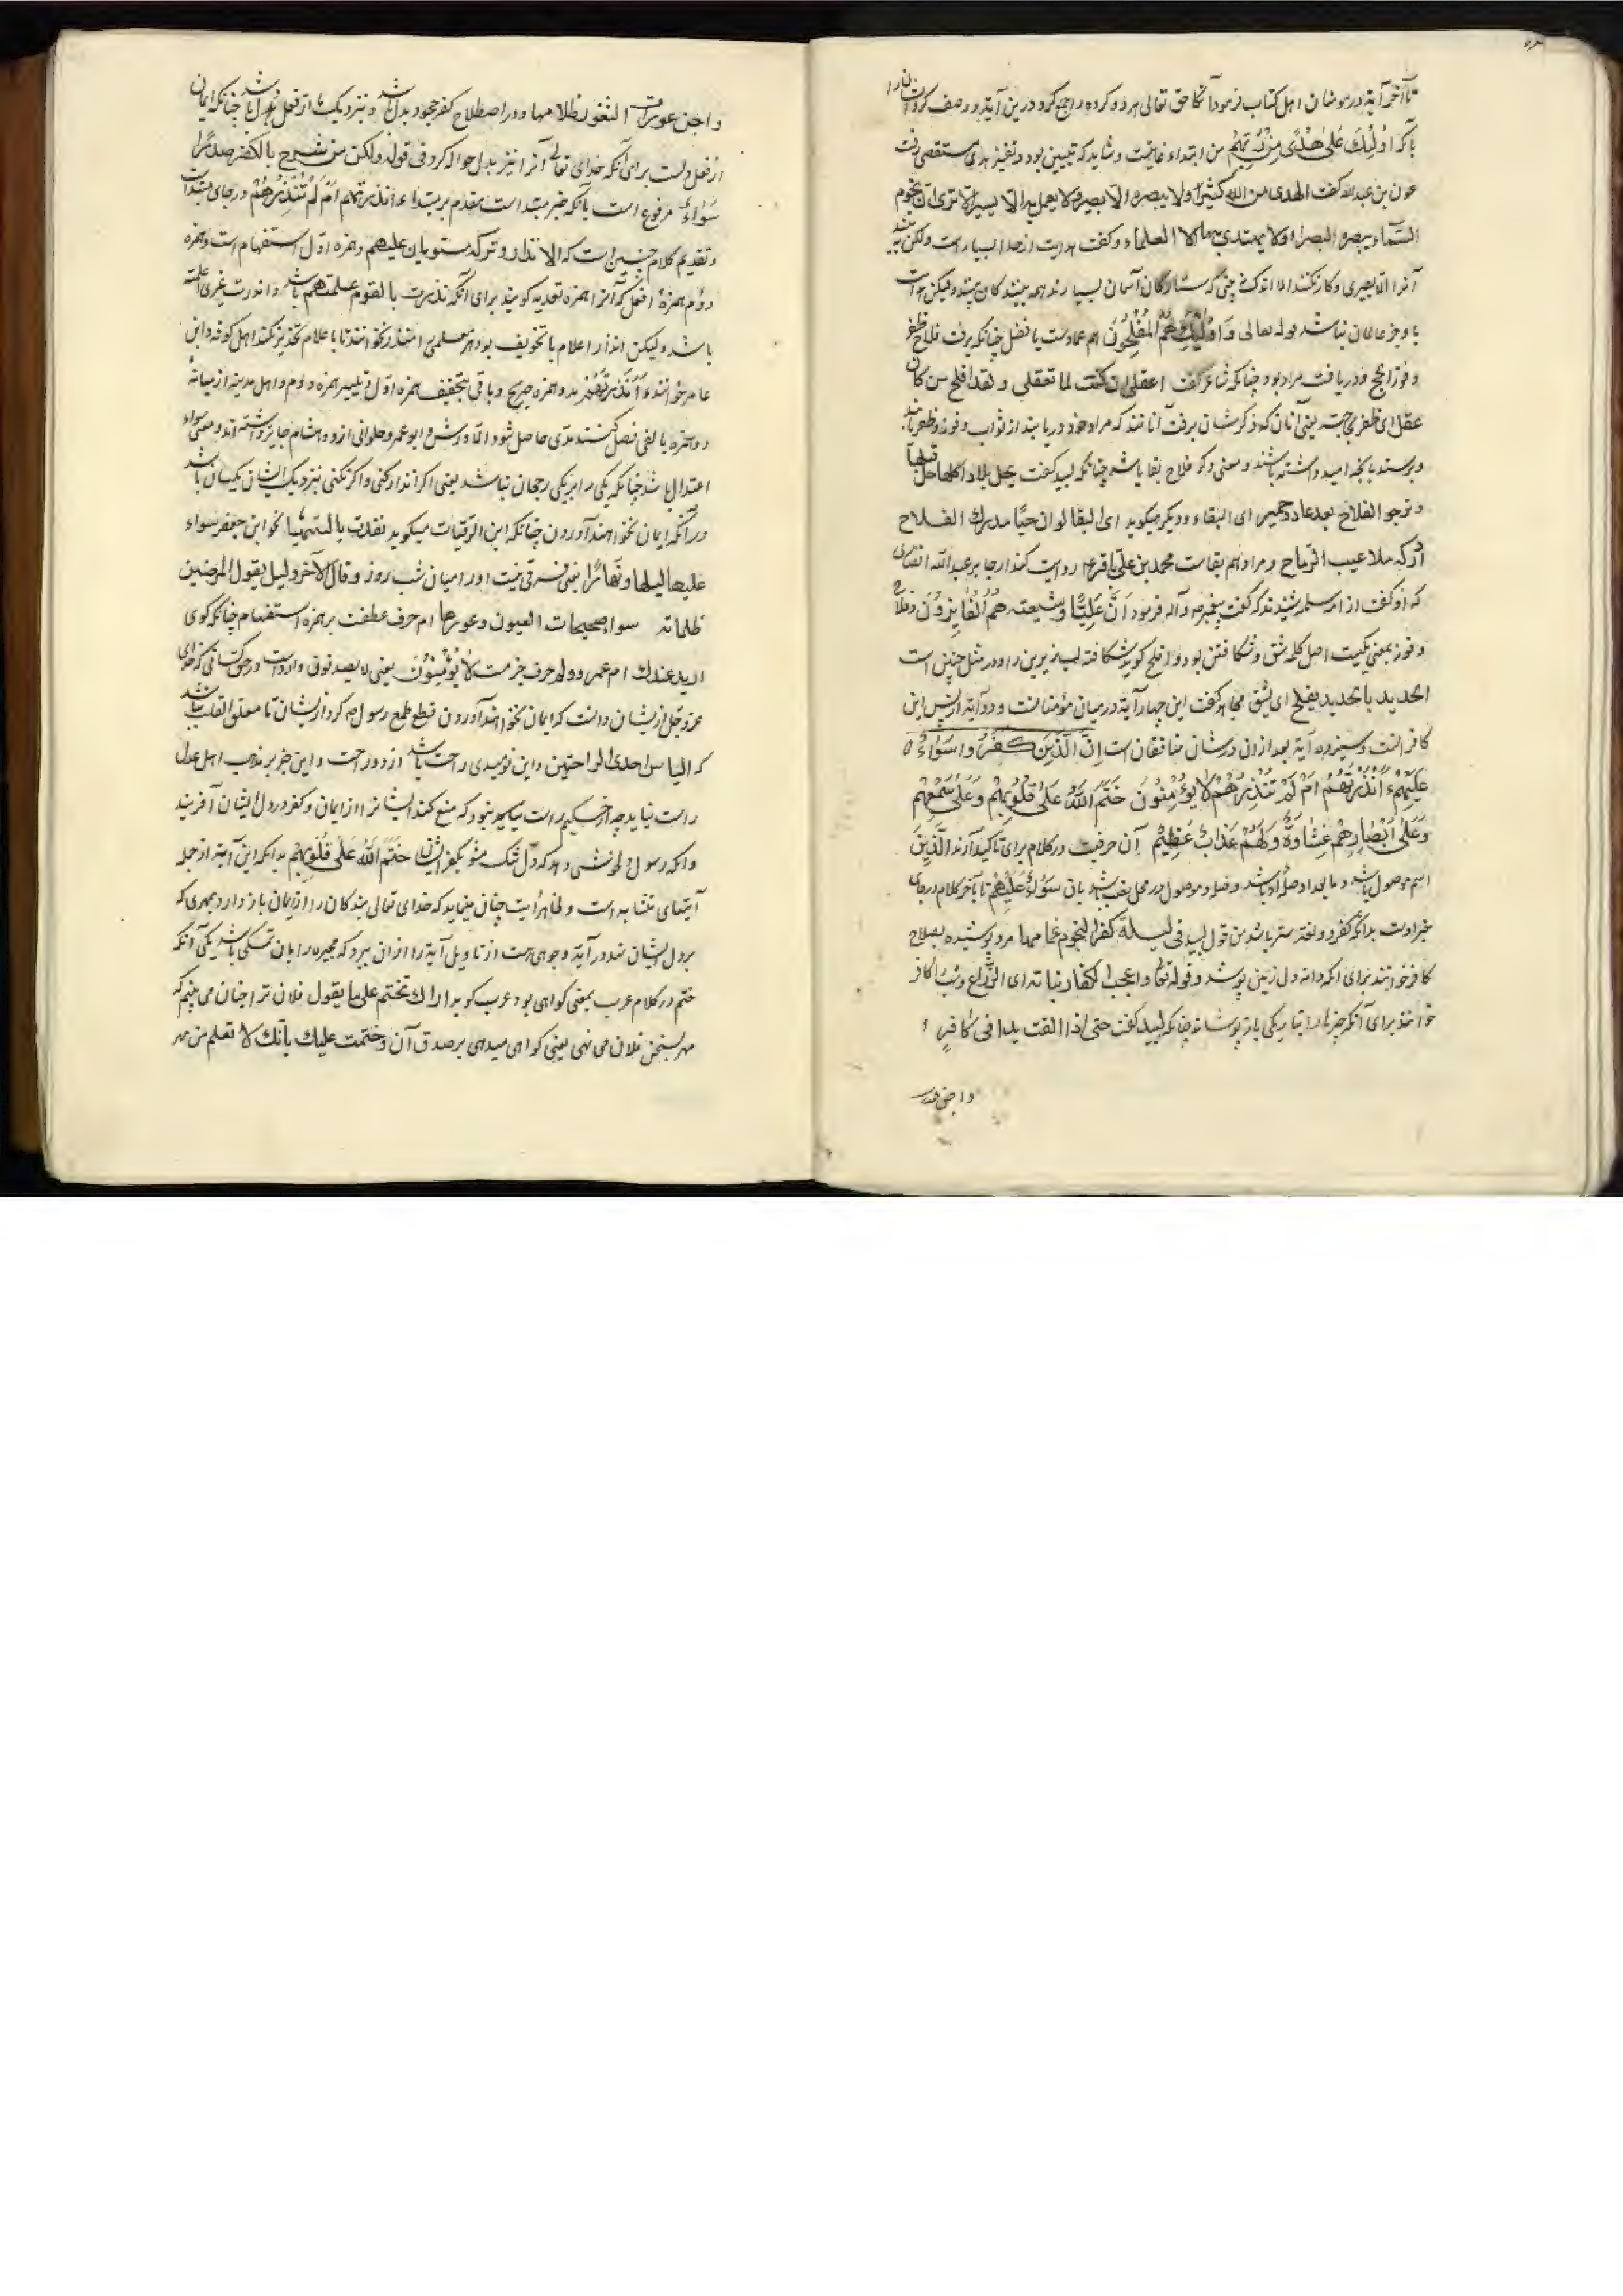 تا آخر آیة در مؤمنان اهل کتاب فرمود آنگاه حق تعالی هر دو گروه را جمع کرد درین آیة و وصف کرد ایشان را
بآنکه اُولٰئِكَ عَلٰی هُدًی مِنْ رَبِّهِمْ من ابتداء غایتست و شاید که تبیین بود و تفسیر هدی مستقصی رفت
عون بن عبدالله گفت الهدی من الله کثیر ولا یبصره الّا بصیر ولا یعمل به الّا یسیر الا تری ان نجوم
السّماء یبصره البصراء ولا یهتدی بها الا العلماء و گفت هدایت از خدا بسیار است ولکن نبیند
آنرا الّا بصیری و کار نکند الا اندکی نبینی که ستارگان آسمان بسیارند همه بینندگان بینند ولیکن
با وجز عالمان نباشد قوله تعالی وَ اُولٰئِكَ هُمُ الْمُفْلِحُونَ هم عمادست یا فصل چنانکه برفت فلاح ظفر
و فوز نجح و دریافت مراد بود چنانکه شاعر گفت اعقلی ان کنت لما تعقلی و لقد افلح من کان
عقل ای ظفر بحاجته یعنی آنان که ذکر شان برفت آنانند که مراد خود دریابند از ثواب و فوز و ظفر یابند
و برسند بآنچه امید داشته باشند و معنی دگر فلاح بقا باشد چنانکه لبید گفت نحل بلادا کلها حل قبلنا
و نرجو الفلاح بعد عاد و حمیر ای البقاء و دیگر میگوید ای البقا لو ان حیًّا مدرك الفلاح
ادرکه ملاعب الرّماح و مراد هم بقاست محمد بن علی باقر ع روایت کند از جابر عبدالله انصاری
که او گفت از ام سلمه شنیدم که گفت پیغمبر ص و آله فرمود اَنَّ عَلِیًّا وَ شیعته هُمُ الْفَایِزُوْنَ و فلاح
و فوز بمعنی یکیست اصل کلمه شق و شکافتن بود و افلح گویند شکافته لب زیرین را و در مثل چنین است
الحدید بالحدید یفلح ای یشق مجاهد گفت این چهار آیة در میان مؤمنانست و دو آیة از پس این
کافرانست و سیزده آیة بعد ازان در شان منافقان است اِنَّ الَّذِیْنَ کَفَرُوا سَوَاءٌ
عَلَیْهِمْ ءَاَنْذَرْتَهُمْ اَمْ لَمْ تُنْذِرْهُمْ لَا یُؤْمِنُوْنَ خَتَمَ اللّٰهُ عَلٰی قُلُوْبِهِمْ وَ عَلٰی سَمْعِهِمْ
وَ عَلٰی اَبْصَارِهِمْ غِشَاوَةٌ وَ لَهُمْ عَذَابٌ عَظِیْمٌ اِن حرفیست در کلام برای تاکید آرند الَّذِیْنَ
اسم موصول باشد و ما بعد او صلهٔ او باشد و صله و موصول در محل نصب باشد بان سَوَاءٌ عَلَیْهِمْ تا بآخر کلام در جای
خبر اوست بدانکه کفر در لغت ستر باشد من قول لبید فی لیلة کفر النجوم غمامها مرد پوشیده بسلاح
کافر خوانند برای انکه دانه در دل زمین پوشد و قوله تعالی و اعجب الکفار نباته ای الزُّراع و شب را کافر
خوانند برای آنکه چیزها را بتاریکی باز پوشاند چنانکه لبید گفت حتی اذا القت یدا فی کافرٍ
واجن عورات
واجن عورات الثغور ظلامها و در اصطلاح کفر جحود بدل باشد و بنزدیک ما از فعل دل باشد چنانکه ایمان
از فعل دلست برای آنکه خدای تعالی آنرا نیز بدل حواله کرد فی قوله ولکن من شرح بالکفر صدرًا
سَوَاءٌ مرفوع است بآنکه خبر مبتدا است مقدم بر مبتدا ءانذرتهم اَمْ لَمْ تُنْذِرْهُمْ در جای مبتداست
و تقدیم کلام چنین است که الانذار و ترکه مستویان علیهم و همزه اوّل استفهام است و همزه
دوم همزهٔ افعل که آنرا همزه تعدیه گویند برای آنکه نذرت بالقوم علمت بهم باشد و انذرت غیری اعلمته
باشد ولیکن انذار اعلام با تخویف بود هر معلمی را منذر نخوانند تا با اعلام تحذیر نکند اهل کوفه و ابن
عامر خوانند ءَاَنْذَرْتَهُمْ بدو همزه صریح و باقی بتخفیف همزه اوّل و تلیین همزه دوم و اهل مدینه از میانهٔ
دو همزه بالفی فصل کنند مدّی حاصل شود الّا ورش و ابو عمرو حلوانی ازو و هشام جایز داشته اند و معنی سواء
اعتدال باشد چنانکه یکی را بر یکی رجحان نباشد یعنی اگر انذار کنی و اگر نکنی بنزدیک ایشان یکسان باشد
در آنکه ایمان نخواهند آوردن چنانکه ابن الرقیات میگوید تقدت بی الشهباء نحو ابن جعفر سواء
علیها لیلها و نَهَارُها یعنی فرقی نیست او را میان شب و روز و قال الآخر ولیل یقول المرء من
ظلماته سواء صحیحات العیون و عورها ام حرف عطفست بر همزه استفهام چنانکه گوی
ازید عندك ام عمرو و لم حرف جزمست لَا یُؤْمِنُوْنَ یعنی لا یصدقون و این در حق کسانیست که خدای
عزوجل از ایشان دانست که ایمان نخواهند آوردن قطع طمع رسول ص کرد از ایشان تا معلق القلب نباشد
که الیاس احدی الراحتین و این نومیدی راحت باشد از دو راحت و این خبر بر مذهب اهل عدل
راست نیاید چه از حکیم راست نیاید که منع کند ایشانرا از ایمان و کفر در دل ایشان آفریند
وانگه رسول را گوید دل تنگ مشو بکفر ایشان خَتَمَ اللّٰهُ عَلٰی قُلُوْبِهِمْ بدانکه این آیة از جمله
آیتهای متشابه است و ظاهر آیت چنان مینماید که خدای تعالی بندگان را از ایمان باز دارد بمهری که
بر دل ایشان نهد و در آیة وجوهی هست از تاویل آیة را ازان ببرد که مجبره را بان تمسکی باشد یکی آنکه
ختم در کلام عرب بمعنی گواهی بود عرب گوید اراك تختم علی ما یقول فلان ترا چنان می بینم که
مهر بسخن فلان می نهی یعنی گواهی میدهی بر صدق آن و ختمت علیك بانّك لا تعلم من مهر